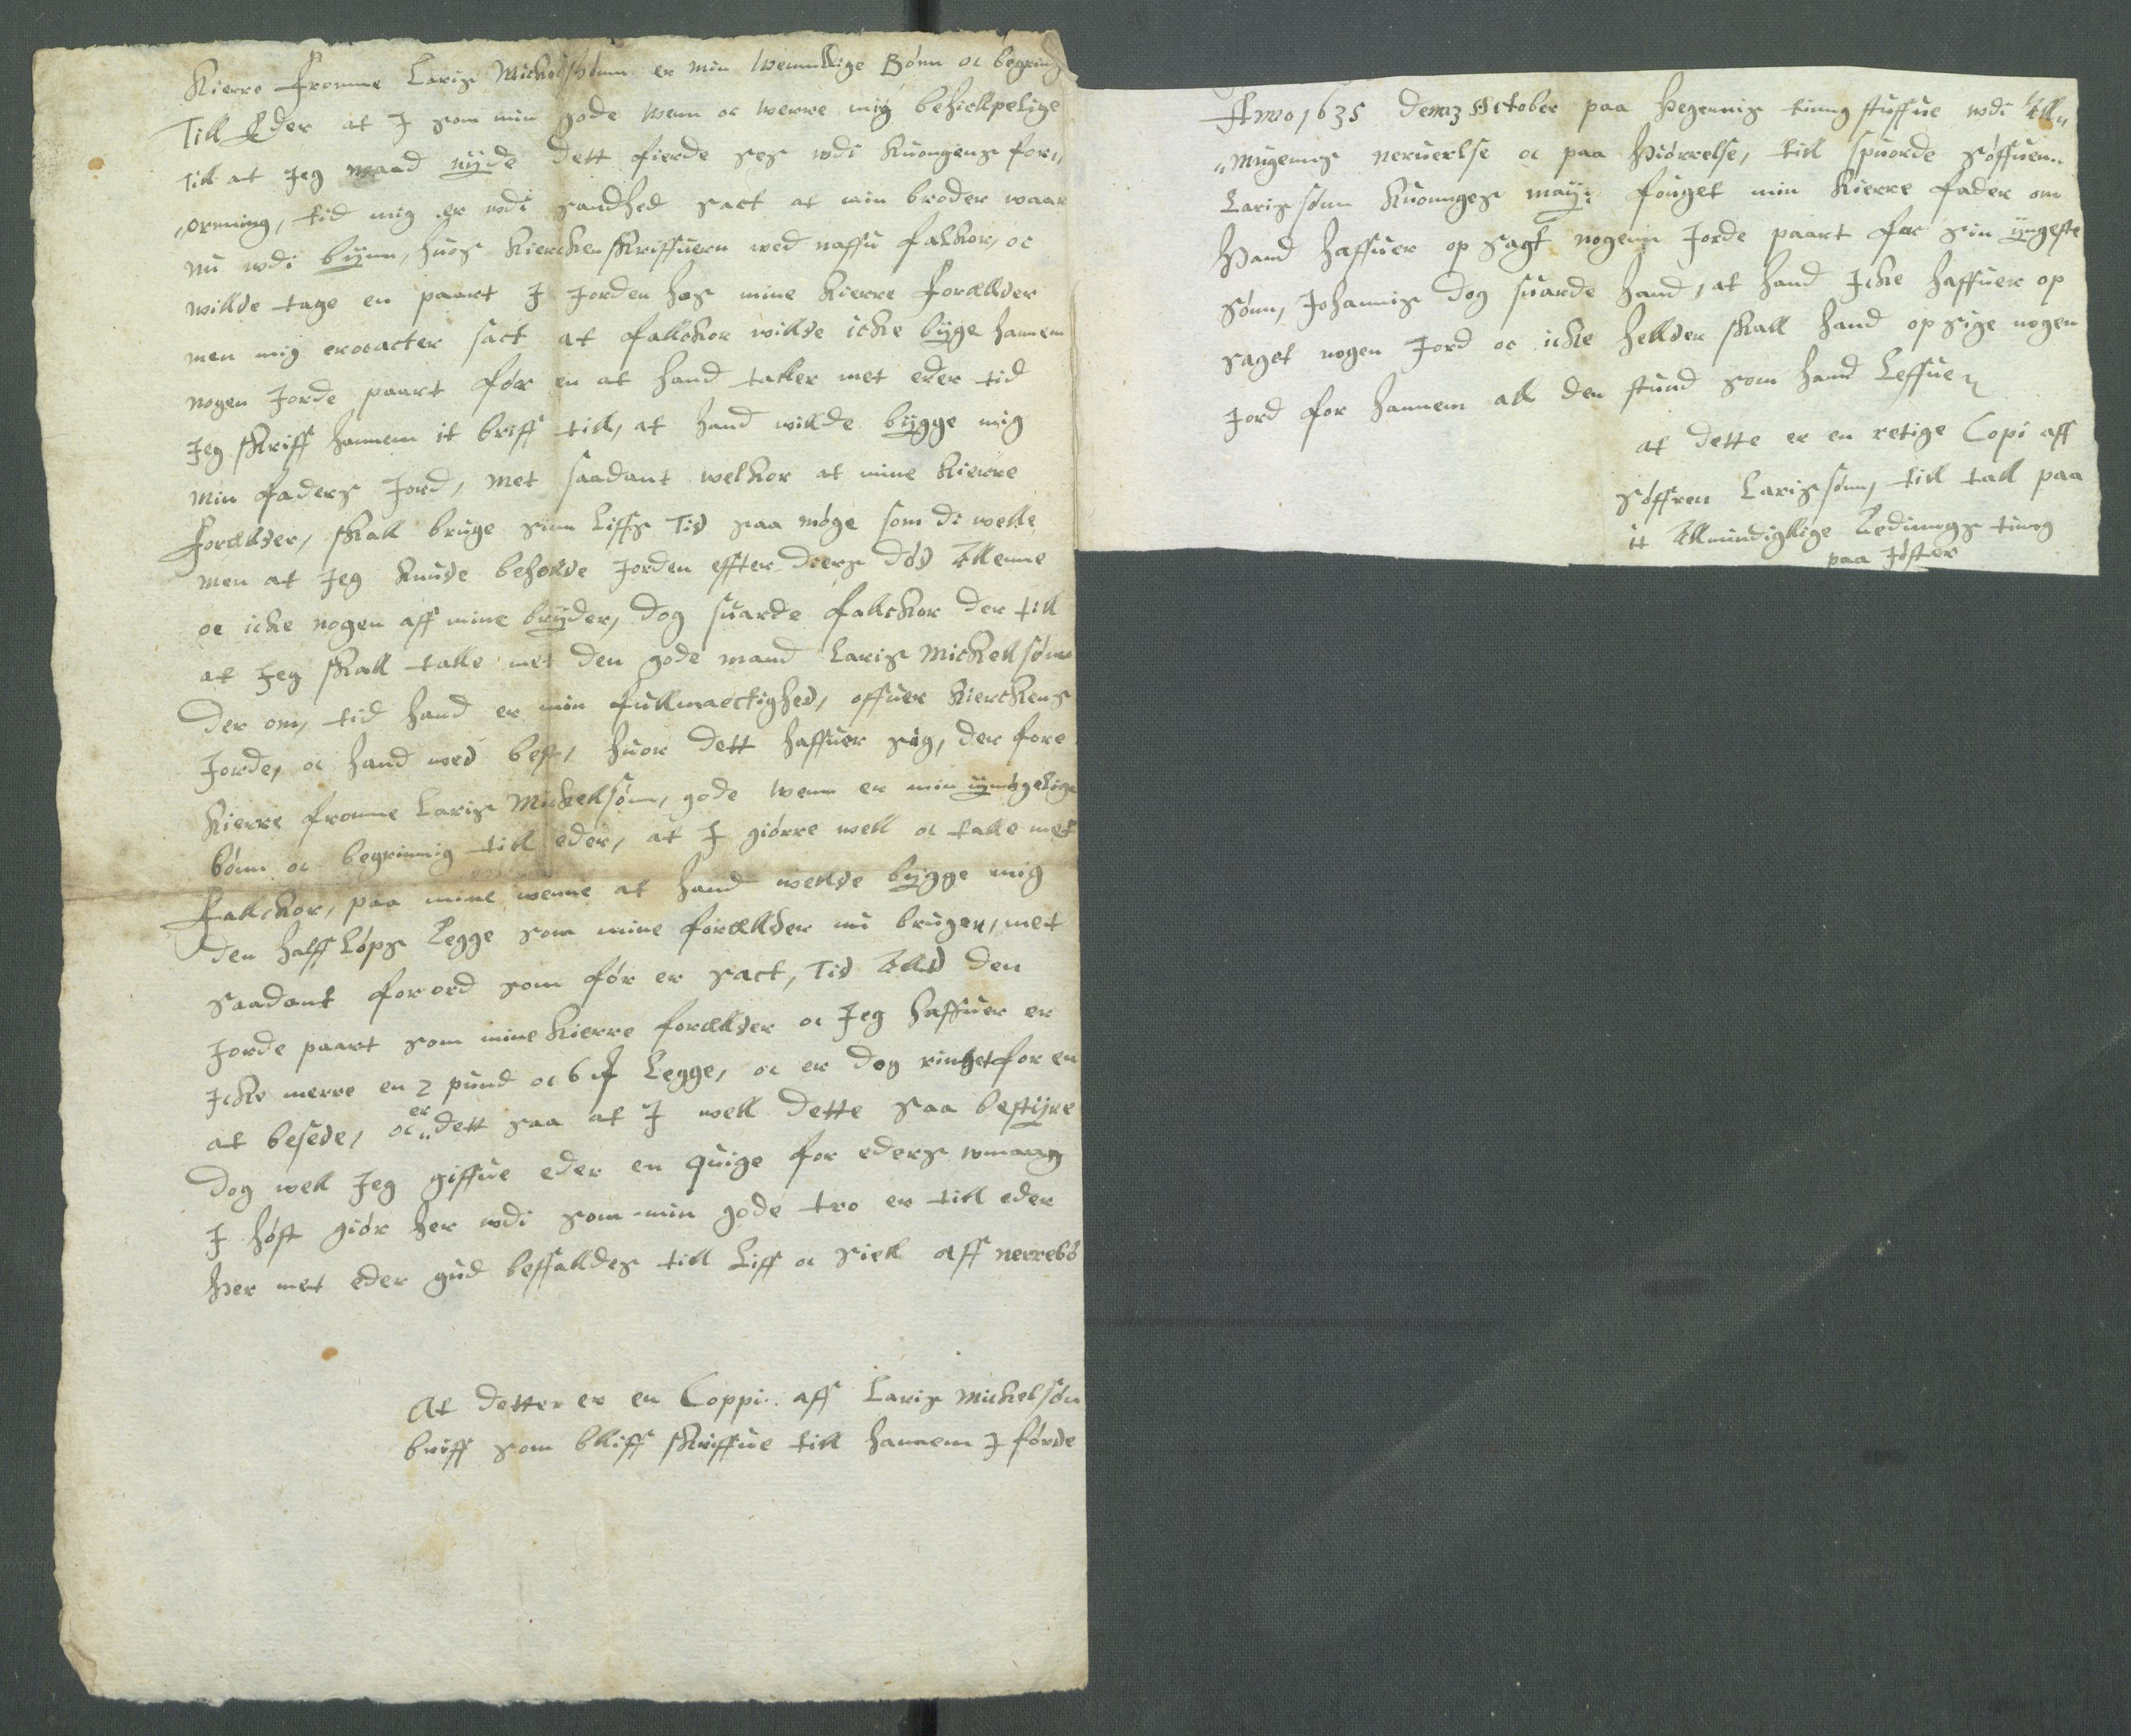 Kierre fromme Laris Mickelsønn er min wennllige Bønn oc begring
Till Eder at I som min gode wenn oc werre mig behiellpelige
till at Jeg maad nÿde dett fierde ses wdi Kuongens for„
„orning, tid mig er wdi sandhed sact at min broder waar
nu wdi bÿnn, huos Kiercken skriffuern wed naffu falkor, oc
willde tage en paart I Jorden hos mine Kierre Forællder
men mig er oc acter sact at fallckor willde icke bÿge hannem
nogen Jorde paart før en at hand taller met eder tid
Jeg skriff hannem it briff till, at hand willde bÿgge mig
min faders Jord, met saadant welkor at mine Kierre
Forællder, skall bruge sinn Liffs Tid saa møge som di welle
men at Jeg kunde beholde Jorden effter diers død Allenne
oc icke nogen aff mine brÿder, dog suarde fallckor der till
at Jeg skall talle met den gode mand Laris Mickellsønn
der om, tid hand er min fullmæctighed, offuer Kierckens
Jorde, oc hand wed best, huor dett haffuer sig, der fore
Kierre fromme Laris Mickellsønn, gode wenn er min ÿmøgelige
bønn oc begrinnig till eder, at I giørre well oc talle met
Fallckor, paa mine wenne at hand wellde bÿgge mig
den halff Løps Legge som mine forællder nu bruger, met
saadant forord som før er sact, Tid Alld den
Jorde paart som mine Kierre forællder oc Jeg haffuer er
Icke merre en 2 pund oc 6 Legge, oc er dog ringhet for en
at besede, oc er dett saa at I well dette saa bestÿre
dog well Jeg giffue eder en quige for eders wmaag
I høst giør her wdi som min gode tro er till eder
Her met eder gud beffalldes till Liff oc siell aff nerrebø
At detter er en Coppi aff Laris Mickelsøn
briff som bliff skriffue till hannem I førde
Anno 1635 den 13 October paa Hegennis tinng stuffue wdi All„
„mugenns neruerlse oc paa Hiørrelse, till spuorde Søffuenn
Larissønn Kuonnges maÿ: fouget min Kierre fader om
Hand haffuer op sagt nogenn Jorde paart for sin ÿngeste
sønn, Johannis dog suarde hand, at hand Icke haffuer op
saget nogen Jord oc icke hellder skall hand op sige nogen
Jord for hannem all den stund som hand Leffuer
at dette er en retige Copi aff
Søffren Larissønn, till tall paa
it Allmindigllige Ledinngs ting
paa Jøster